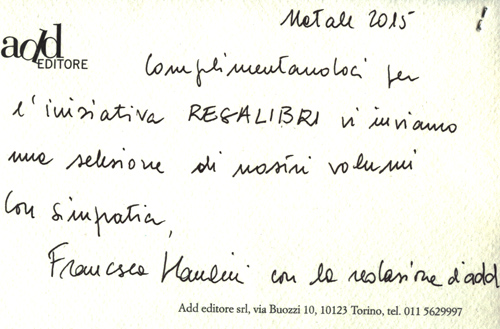 Natale 2015
add
EDITORE
Complimentandoci per
l'iniziativa REGALIBRI vi inviamo
una selezione di nostri volumi
Con simpatia,
Francesca con la redazione d'add
Add editore srl, via Buozzi 10, 10123 Torino, tel. 011 5629997